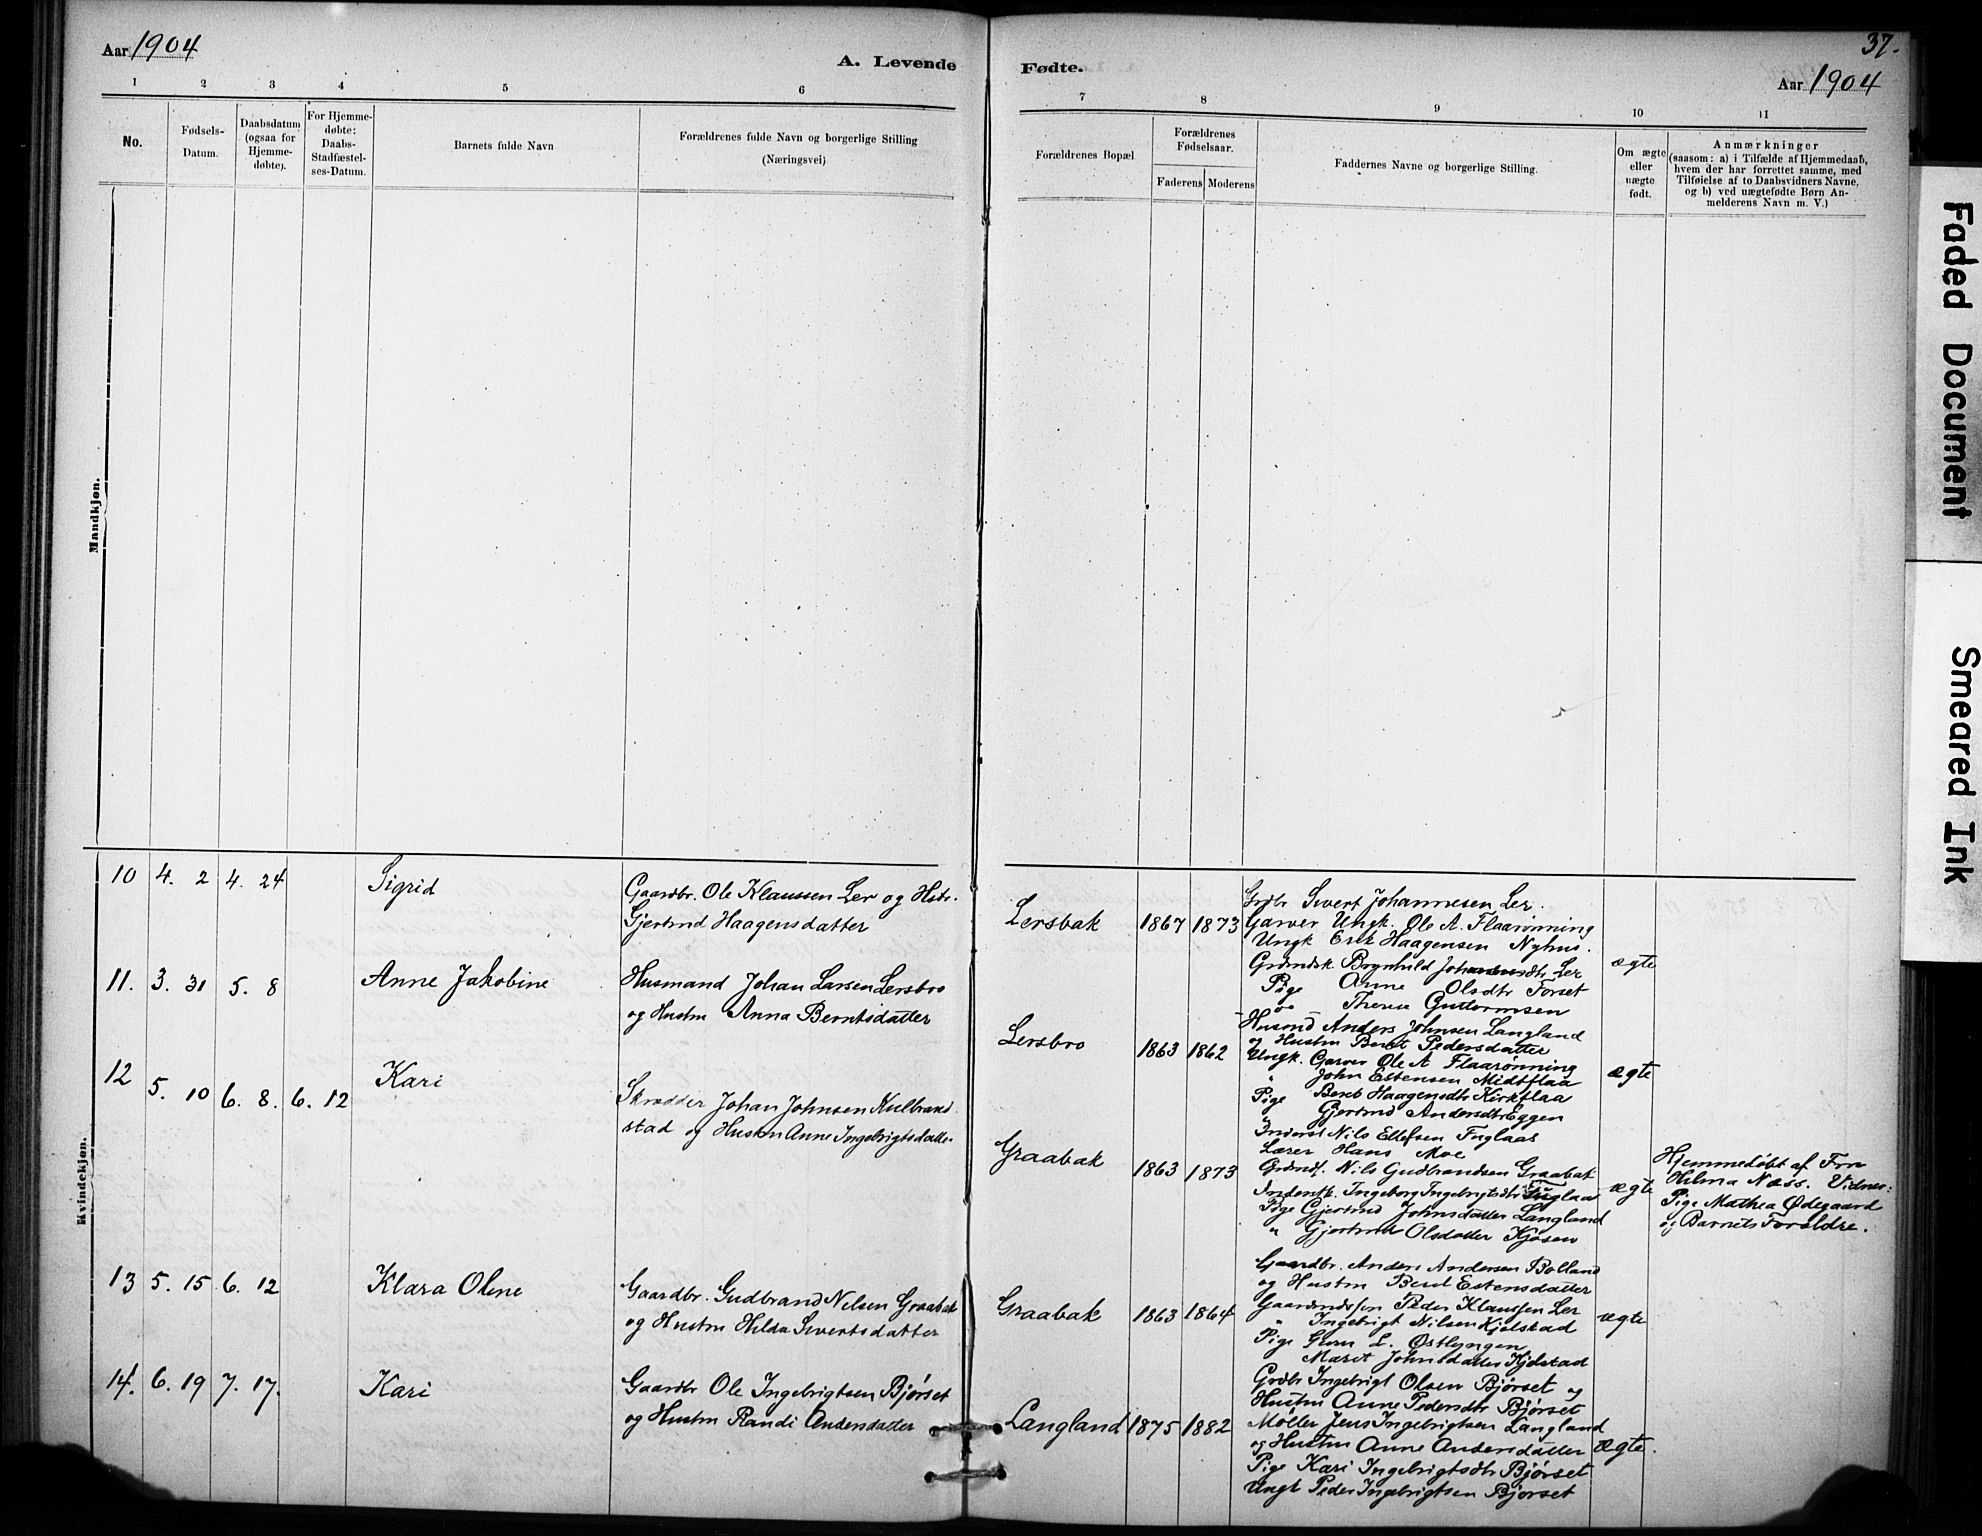 Aar 1904
A. Levende
Fødte.
37.
Aar 1904
1 2 3 4 5 6 7 8 9 10 11
No.
Fødsels-
Datum.
Daabsdatum
(ogsaa for
Hjemme-
døbte).
For Hjemme-
døbte:
Daabs-
Stadfæstel-
ses-Datum.
Barnets fulde Navn
Forældrenes fulde Navn og borgerlige Stilling
(Næringsvei)
Forældrenes Bopæl
Forældrenes
Fødselsaar.
Faderens Moderens
Faddernes Navne og borgerlige Stilling.
Om ægte
eller
uægte
født.
Anmærkninger
(saasom: a) i Tilfælde af Hjemmedaab,
hvem der har forrettet samme, med
Tilføielse af to Daabsvidners Navne,
og b) ved uægtefødte Børn An-
melderens Navn m. V.)
Mandkjøn.
Kvindekjøn.
10 4. 2 4. 24 Sigrid
Gaardbr. Ole Klaussen Ler og Hstr.
Gjertrud Haagensdatter
Lersbak 1867 1873
Grdbr Sivert Johannesen Ler.
Garver Ungk. Ole A. Flaarønning
Ungk Erik Haagensen Nyhus.
Grdmdsk. Brynhild Ler
Pige Anne Olsdtr Forset
Guttormsen
ægte
11. 3. 31 5. 8 Anne Jakobine
Husmand Johan Larsen Lersbro
og Hustru Anna Berntsdatter
Lersbro 1863 1862
Husmd Anders Johnsen Langland
og Hustru Berit Pedersdatter
Ungk. Garver Ole A Flaarønning
" John Estensen Midtflaa
Pige Berit Haagensdtr Kirkflaa
" Gjertrud Andersdtr Eggen
ægte
12 5. 10 6. 8. 6. 12 Kari
Skrædder Johan Johnsen Kulbrand
stad og Hustru Anne Ingebrigtsdatter
Graabak 1863 1873
Inderst Nils Ellefsen Fuglaas
Lærer Hans Moe
Grdmd. Nils Gudbrandsen Graabak
Inderstk. Ingeborg Ingebrigtsdtr Fuglaas
Pige Gjertrud Johnsdatter Langland
" Gjertrud Olsdatter Kjøsen
ægte
Hjemmedøbt af Fru
Hilma Næss. Vidner:
Pige Mathea Ødegaard
og Barnets Forældre.
13 5. 15 6. 12 Klara Oline
Gaardbr. Gudbrand Nilsen Graabak
og Hustru Hilda Sivertsdatter
Graabak 1863 1864
Gaardbr. Anders Andersen Bolland
og Hustru Berit Estensdatter
Peder Klaussen Ler
" Ingebrigt Nilsen Kjelstad
Pige L. Østlyngen
Marit Johnsdatter Kjelstad
ægte
14. 6. 19 7. 17. Kari
Gaardbr Ole Ingebrigtsen Bjørset
og Hustru Randi Andersdatter
Langland 1875 1882
Grdbr Ingebrigt Olsen Bjørset og
Hustru Anne Pedersdtr Bjørset
Møller Jens Ingebrigtsen Langland
og Hustru Anne Andersdatter
Pige Kari Ingebrigtsdtr Bjørset
Ungk Peder Ingebrigtsen Bjørset
ægte.
Faded Document
Smeared Ink